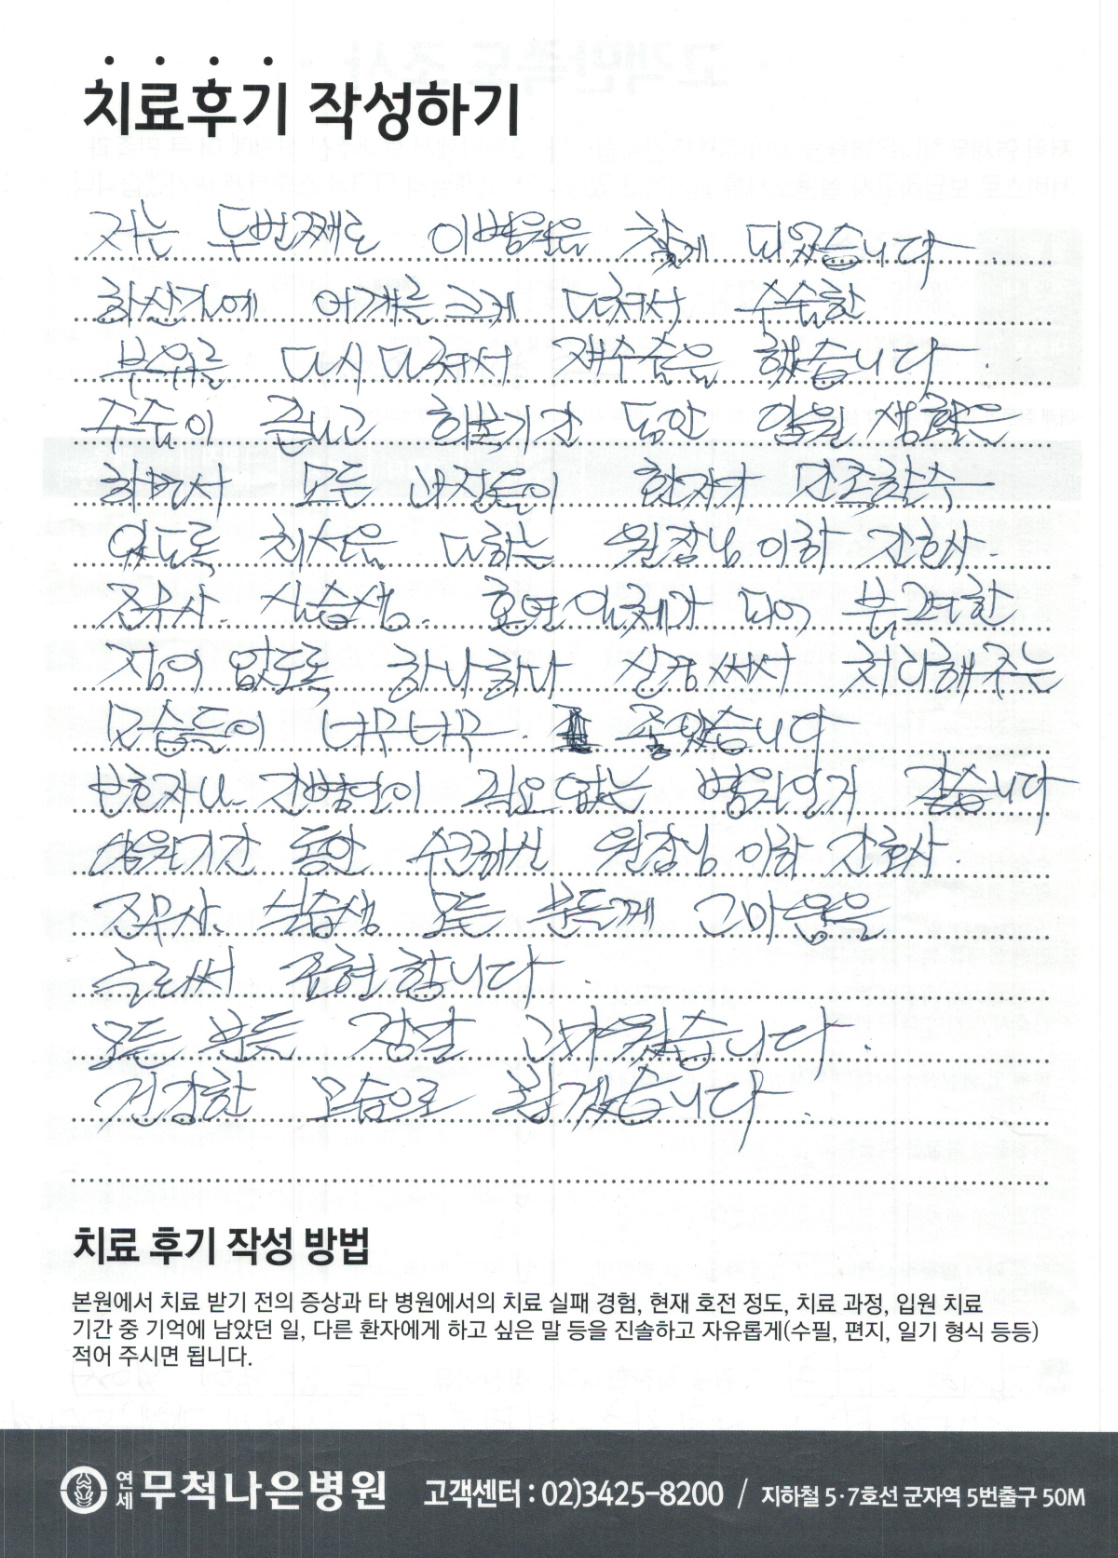 치료후기 작성하기
저는 두번째로 이병원을 찾게 되었습니다
하산길에 어깨를 크게 다쳐서 수술한
부위를 다시 다쳐서 재수술을 했습니다
수술이 끝나고 회복기간 동안 입원 생활을
하면서 모든 내장들이 환자가 만족할수
있도록 최선을 다하는 원장님 이하 간호사.
조무사. 실습생. 혼연일체가 되어 불편한
점이 없도록 하나하나 살펴써서 처리해주는
모습들이 너무너무 좋았습니다
보호자나 간병인이 필요없는 병원인거 같습니다
입원기간 동안 수고하신 원장님 이하 간호사.
조무사. 실습생 모든 분들께 고마움을
글로써 표현합니다.
모든 분들 정말 고마웠습니다.
건강한 모습으로 뵙겠습니다.
치료 후기 작성 방법
본원에서 치료 받기 전의 증상과 타 병원에서의 치료 실패 경험, 현재 호전 정도, 치료 과정, 입원 치료
기간 중 기억에 남았던 일, 다른 환자에게 하고 싶은 말 등을 진솔하고 자유롭게(수필, 편지, 일기 형식 등등)
적어 주시면 됩니다.
연세 무척나은병원 고객센터 : 02)3425-8200 / 지하철 5·7호선 군자역 5번출구 50M